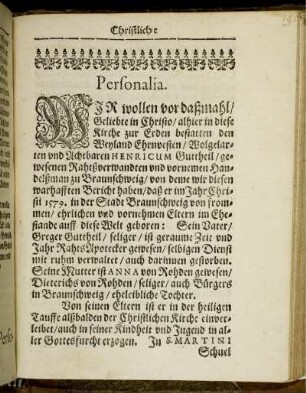 Christliche
Personalia.
WIR wollen vor daßmahl/
Geliebte in Christo/ alhier in diese
Kirche zur Erden bestatten den
Weyland Ehrnvesten/ Wolgelar-
ten und Achtbaren HENRICUM Guttheil/ ge-
wesenen Rahtßverwandten und vornemen Han-
delßman zu Braunschweig/ von deme wir diesen
warhafften Bericht haben/ daß er im Jahr Chri-
sti 1579. in der Stadt Braunschweig von from-
men/ ehrlichen und vornehmen Eltern im Ehe-
stande auff diese Welt geboren: Sein Vater/
Greger Guttheil/ seliger/ ist geraume Zeit und
Jahr Rahts Apotecker gewesen/ selbigen Dienst
mit ruhm verwaltet/ auch darinnen gestorben.
Seine Mutter ist ANNA von Rohden gewesen/
Dieterichs von Rohden/ seliger/ auch Bürgers
in Braunschweig/ eheleibliche Tochter.
Von seinen Eltern ist er in der heiligen
Tauffe alßbalden der Christlichen Kirche einver-
leibet/ auch in seiner Kindheit und Jugend in al-
ler Gottesfurcht erzogen. In S. MARTINI
Schuel